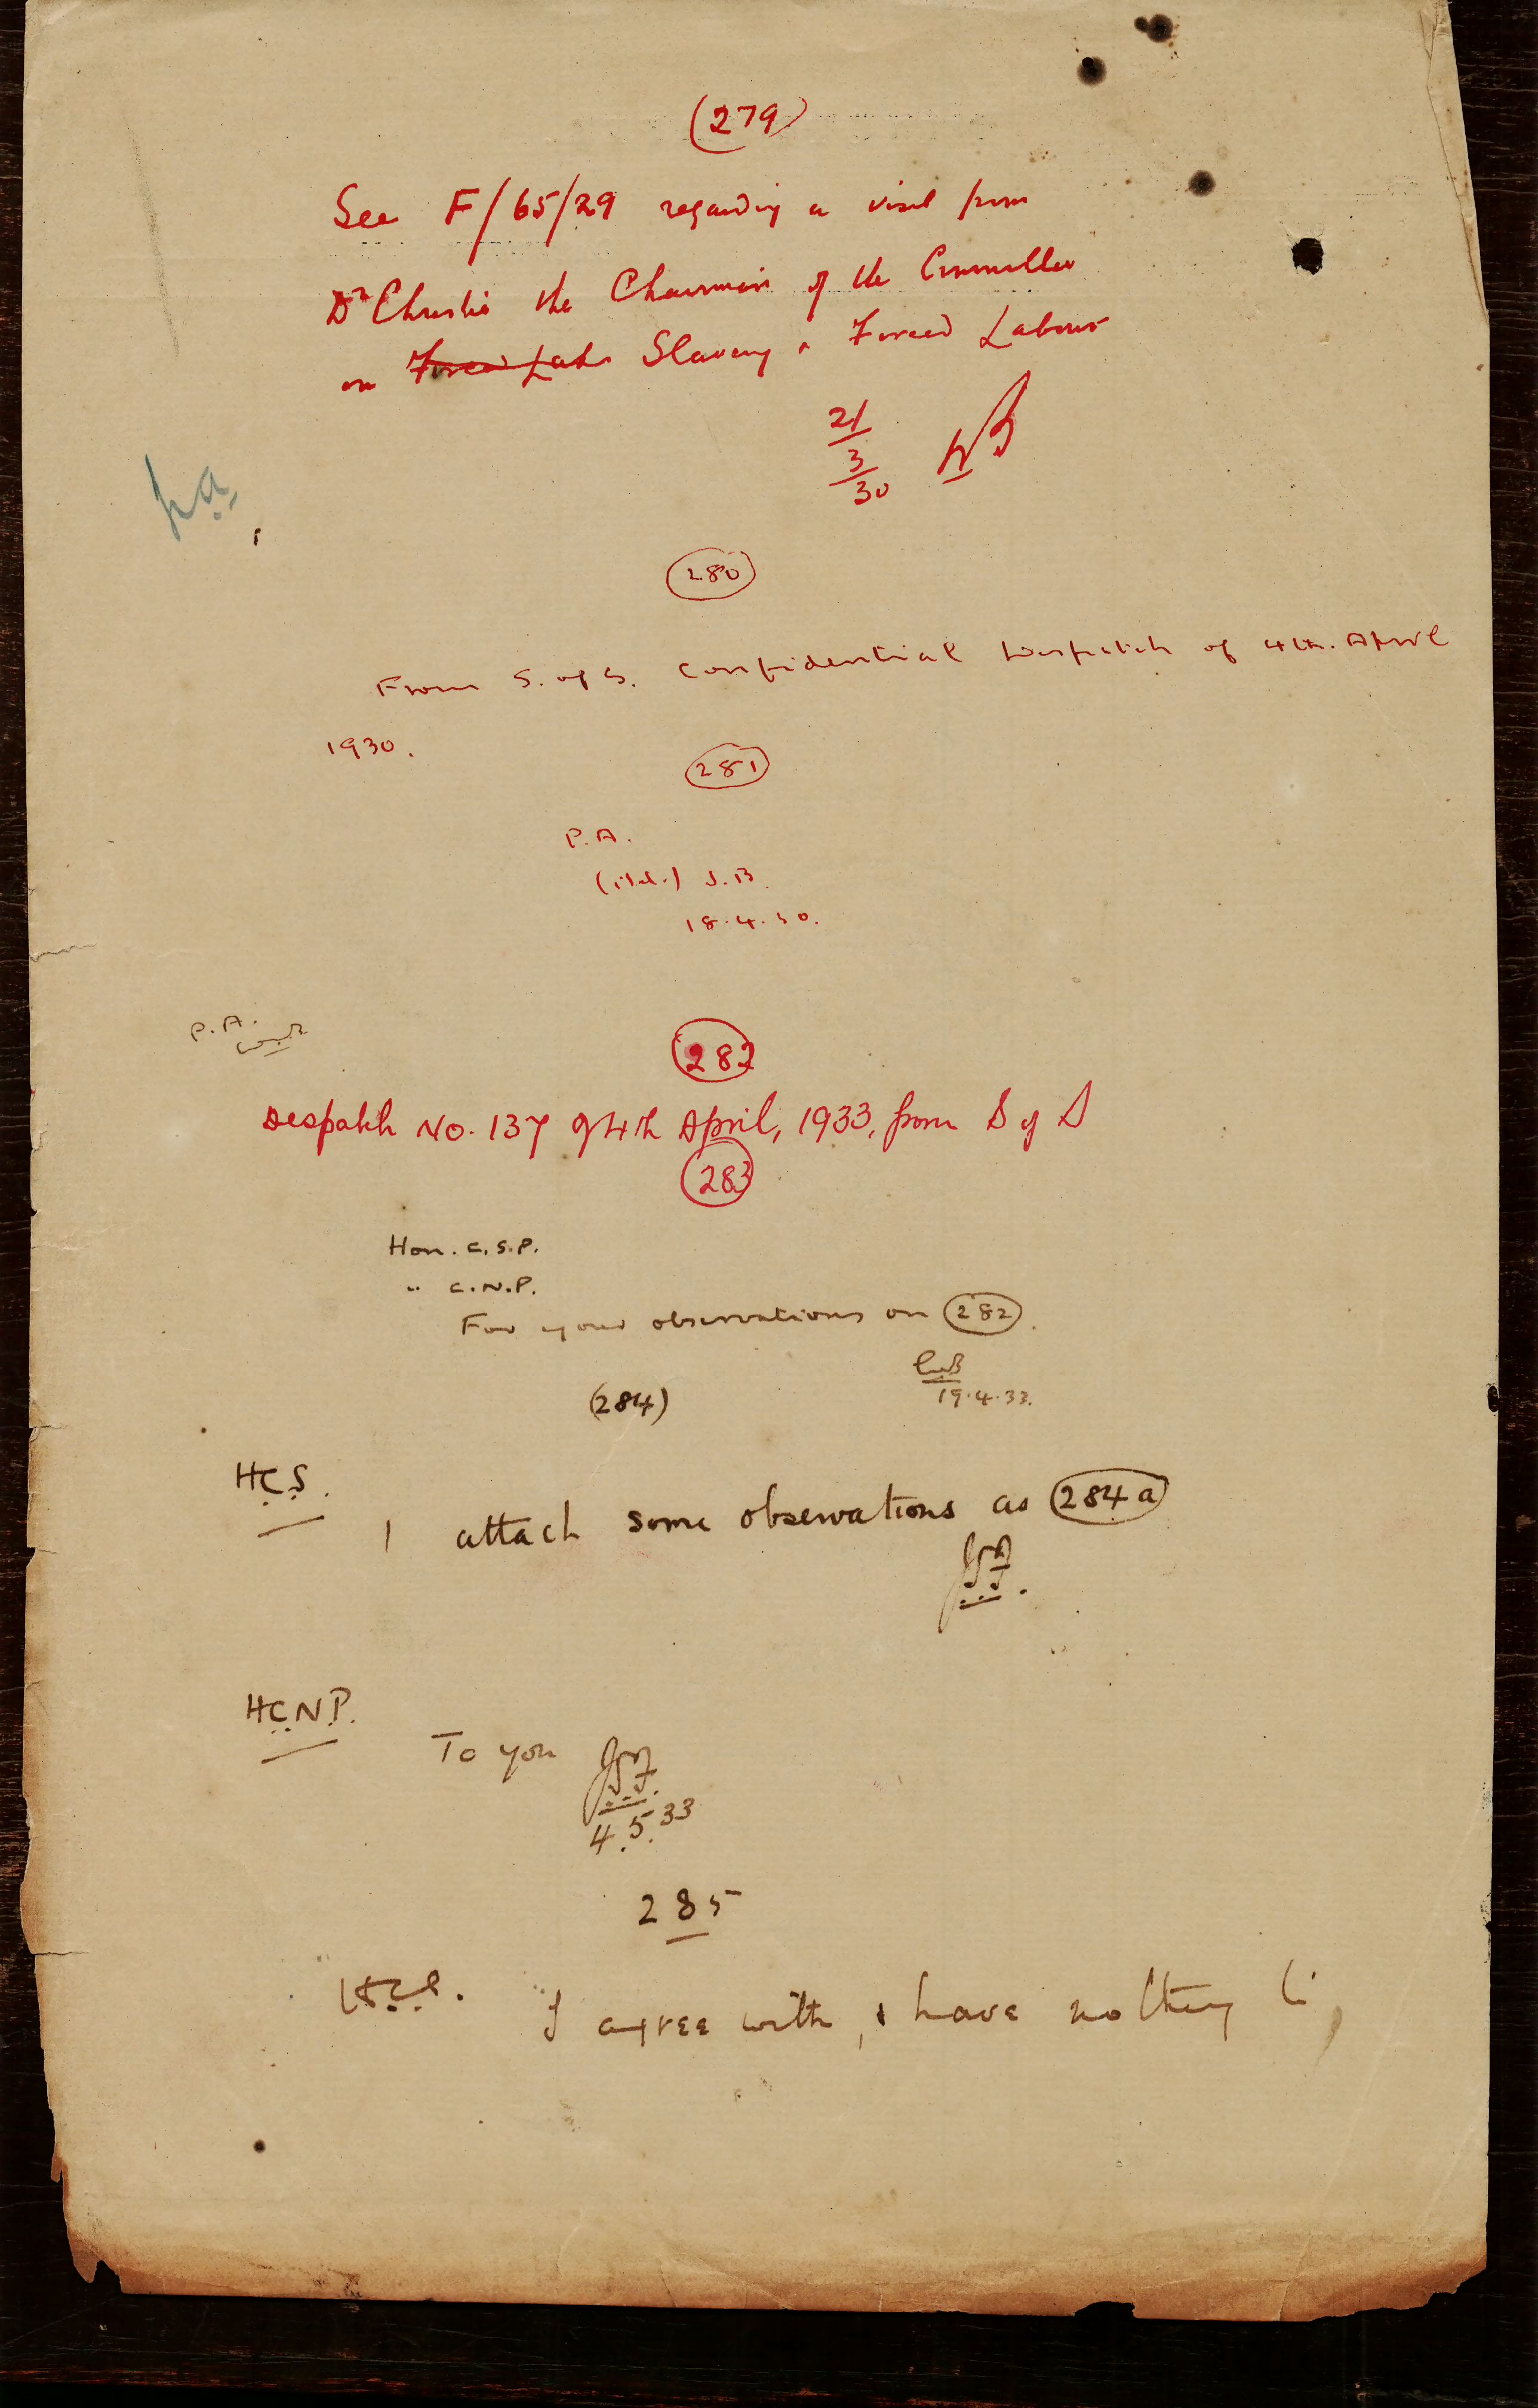 (279)
See F/65/29 regarding a visit from
Dr Christie the Chairman of the Committee
on Forced Lab Slavery & Forced Labour
21/3/30
p.a.
280
From S. of S. Confidential Despatch of 4th. April
1930.
281
P.A.
(itd.) J.B.
18.4.30.
P.A.
282
Despatch No. 137 of 4th April, 1933, from S of S
283
Hon. C.S.P.
" C.N.P.
For your observations on 282.
19.4.33.
(284)
H.C.S.
I attach some observations as 284a
H.C.N.P.
To you
4.5.33
285
H.C.S. I agree with, & have nothing to